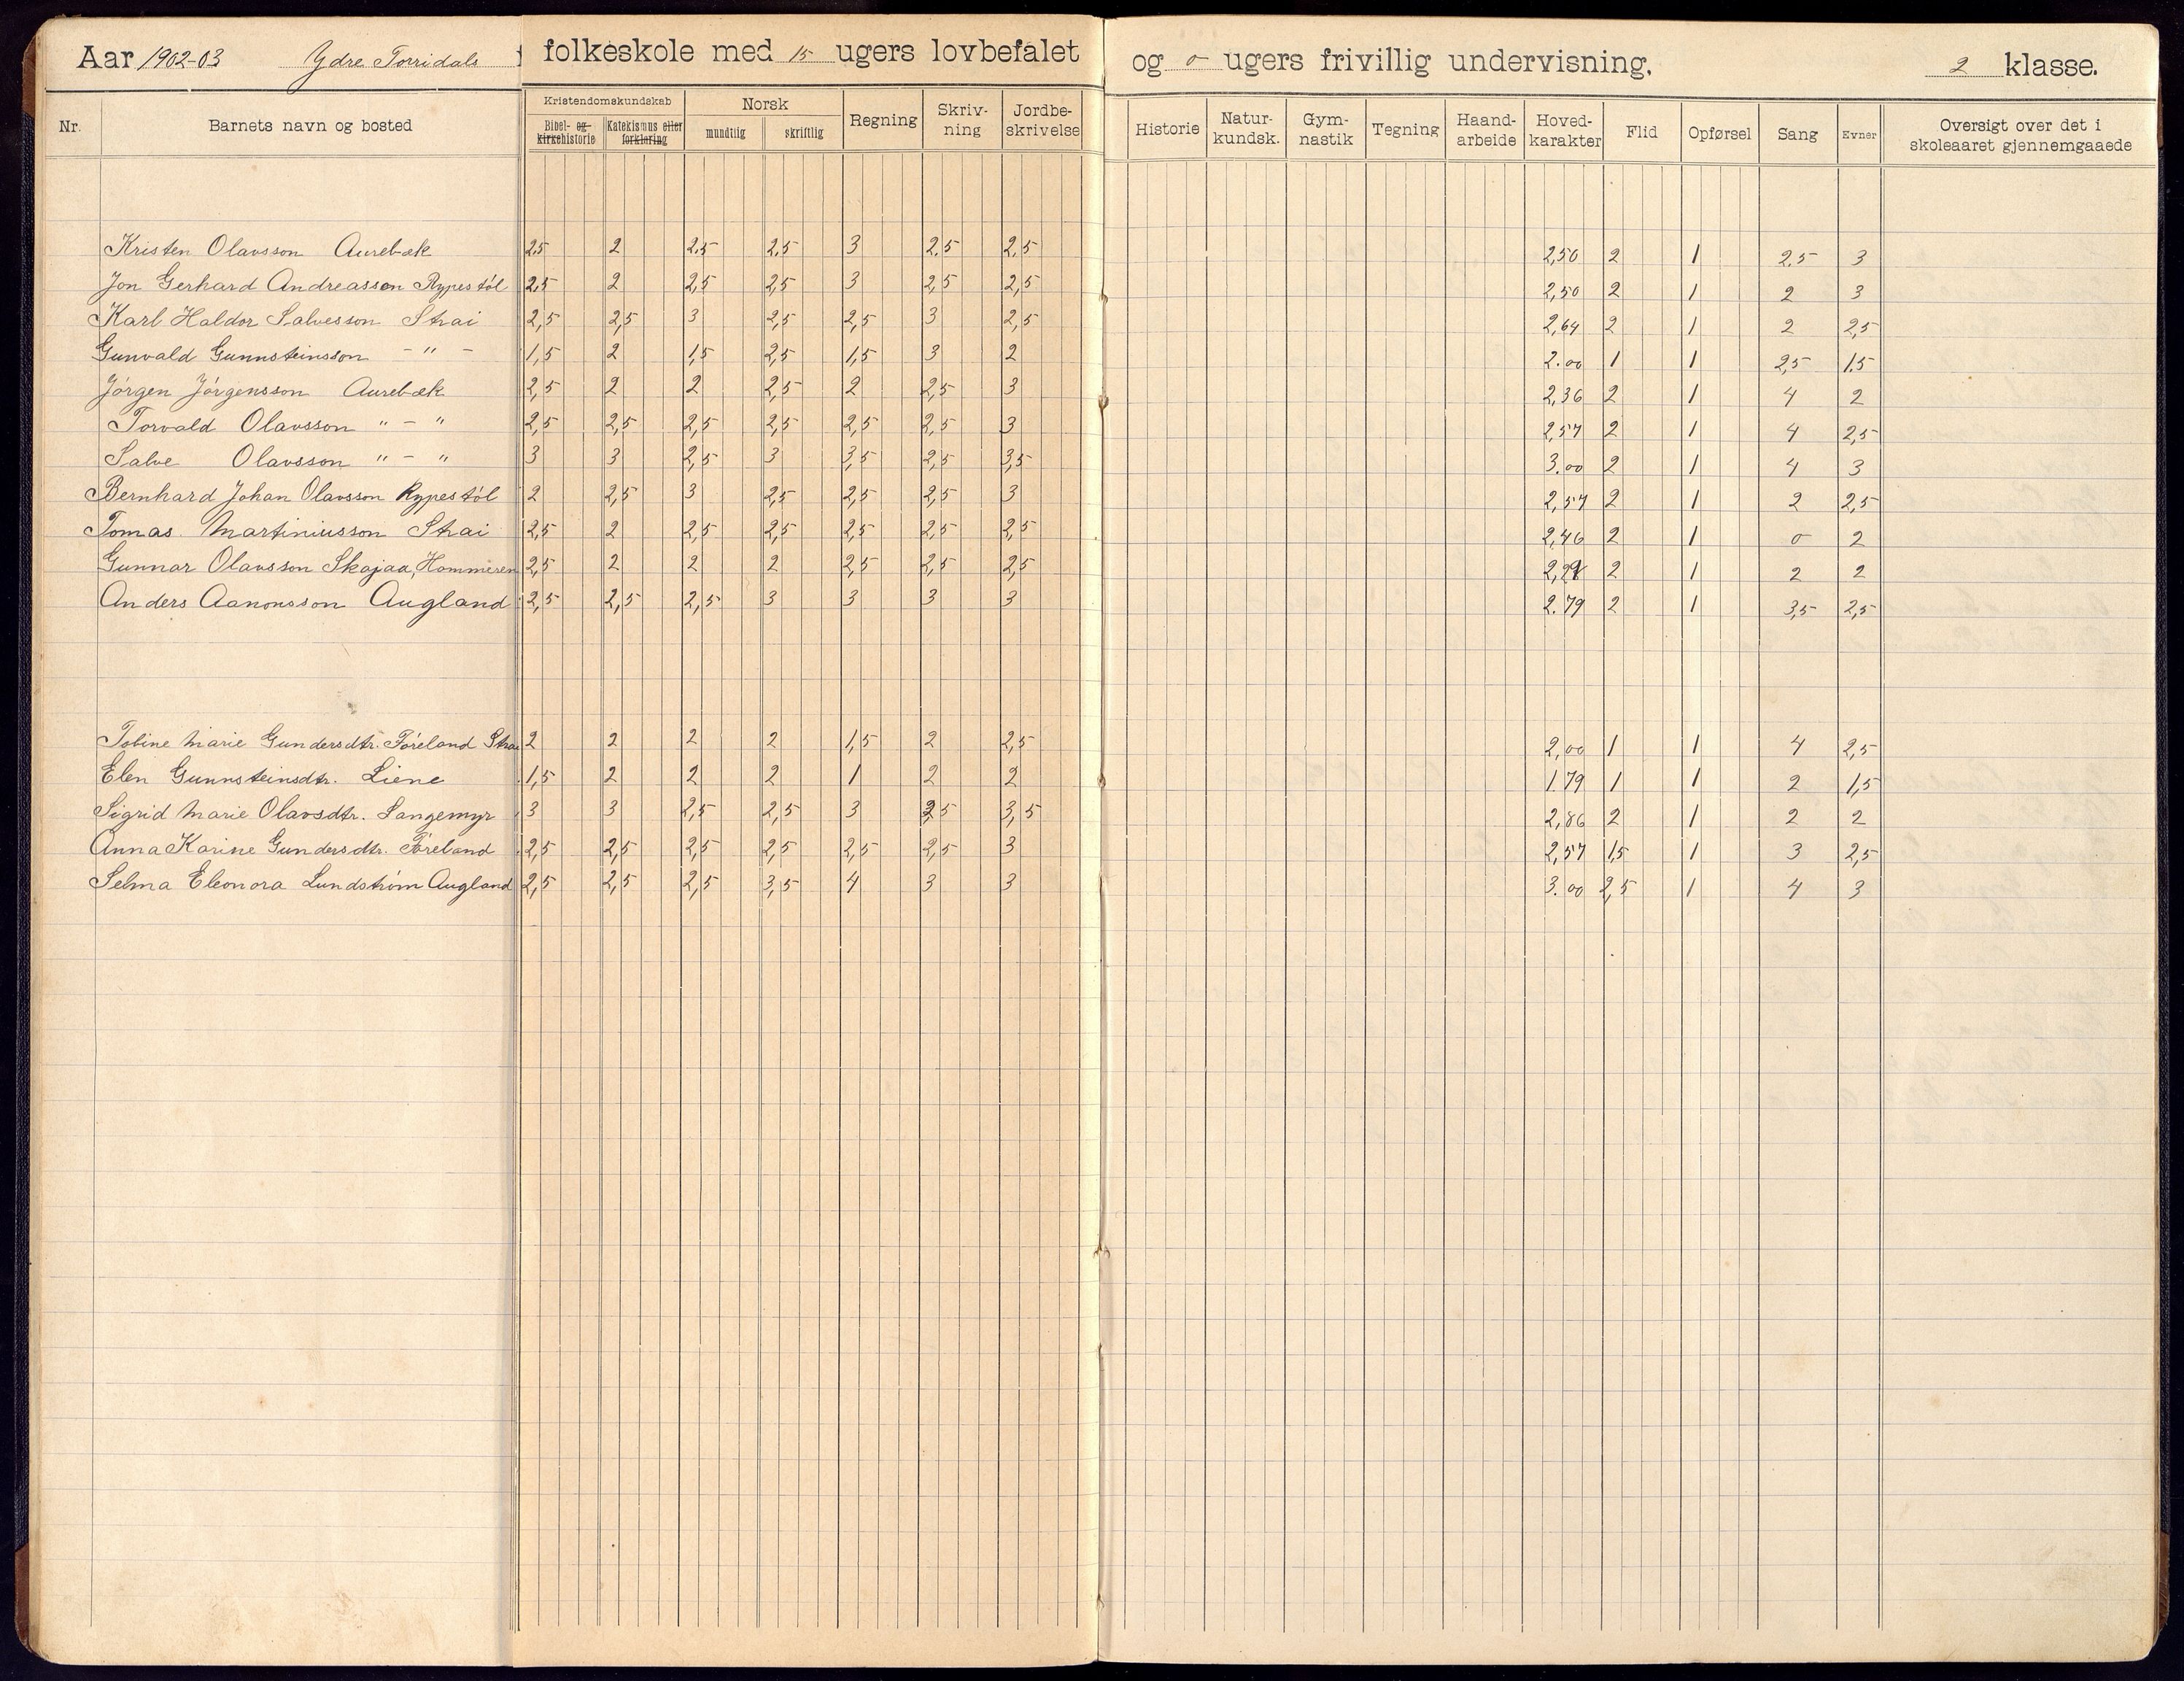 Aar 1902-03 Ydre Torridals folkeskole med 15 ugers lovbefalet og 0 ugers frivillig undervisning. 2 klasse.
Nr. Barnets navn og bosted Kristendomskundskab Bibel- og kirkehistorie Katekismus eller forklaring Norsk mundtlig skriftlig Regning Skriv-ning Jordbe-skrivelse Historie Natur-kundsk. Gym-nastik Tegning Haand-arbeide Hoved-karakter Flid Opførsel Sang Evner Oversigt over det i skoleaaret gjennemgaaede
Kristen Olavsson Aurebæk 2,5 2 2,5 2,5 3 2,5 2,5 2,50 2 1 2,5 3
Jon Gerhard Andreassen Rypestøl 2,5 2 2,5 2,5 3 2,5 2,5 2,50 2 1 2 3
Karl Haldor Salvesson Strai 2,5 2,5 3 2,5 2,5 3 2,5 2,64 2 1 2 2,5
Gunvald Gunnsteinsson - " - 1,5 2 1,5 2,5 1,5 3 2 2.00 1 1 2,5 1,5
Jørgen Jørgensson Aurebæk 2,5 2 2 2,5 2 2,5 3 2,36 2 1 4 2
Torvald Olavsson " - " 2,5 2,5 2,5 2,5 2,5 2,5 3 2,57 2 1 4 2,5
Salve Olavsson " - " 3 3 2,5 3 3,5 2,5 3,5 3.00 2 1 4 3
Bernhard Johan Olavsson Rypestøl 2 2,5 3 2,5 2,5 2,5 3 2,57 2 1 2 2,5
Tomas Martiniusson Strai 2,5 2 2,5 2,5 2,5 2,5 2,5 2,46 2 1 0 2
Gunnar Olavsson Skajaa, Hommeren 2,5 2 2 2 2,5 2,5 2,5 2 1 2 2
Anders Aanonsson Augland 2,5 2,5 2,5 3 3 3 3 2.79 2 1 3,5 2,5
Tobine Marie Gundersdtr. Føreland Strai 2 2 2 2 1,5 2 2,5 2,00 1 1 4 2,5
Elen Gunnsteinsdtr. Liene 1,5 2 2 2 1 2 2 1.79 1 1 2 1,5
Sigrid Marie Olavsdtr. Langemyr 3 3 2,5 2,5 3 2,5 3,5 2,86 2 1 2 2
Anna Karine Gundersdtr. Føreland 2,5 2,5 2,5 2,5 2,5 2,5 3 2,57 1,5 1 3 2,5
Selma Eleonora Lundstrøm Augland 2,5 2,5 2,5 3,5 4 3 3 3.00 2,5 1 4 3